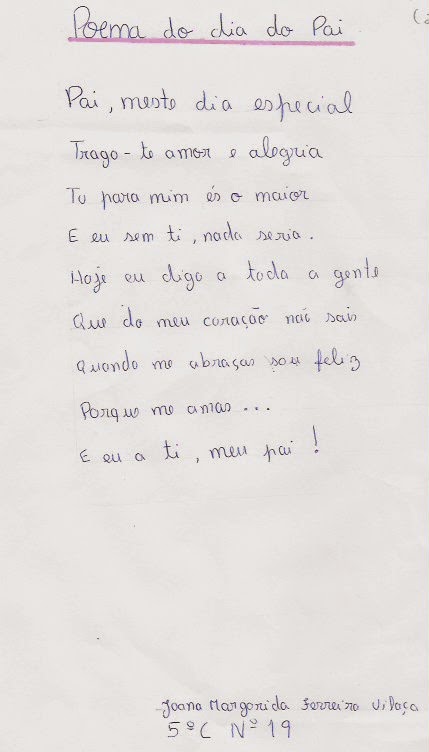 Poema do dia do Pai
Pai, neste dia especial
Trago-te amor e alegria
Tu para mim és o maior
E eu sem ti, nada seria.
Hoje eu digo a toda a gente
Que do meu coração não sais
Quando me abraças sou feliz
Porque me amas...
E eu a ti, meu pai!
Joana Margarida Ferreira Vilaça
5ºC Nº 19